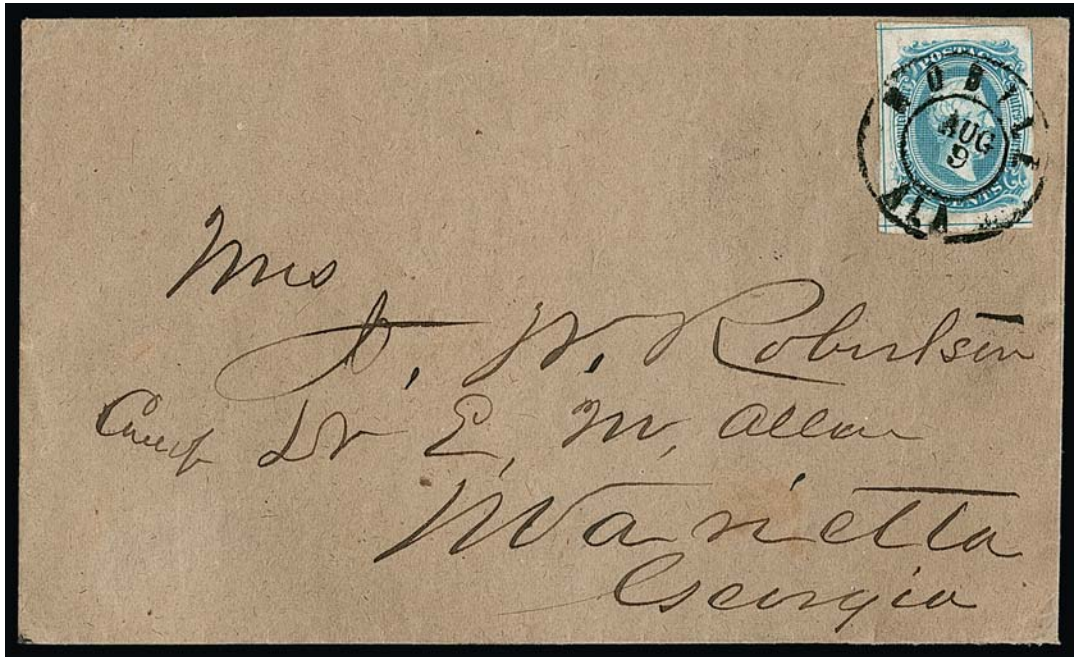 POSTAGE
CENTS
MOBILE
AUG
9
ALA
Mrs
J. W. Robertson
Care of Dr E. M. Allen
Marietta
Georgia